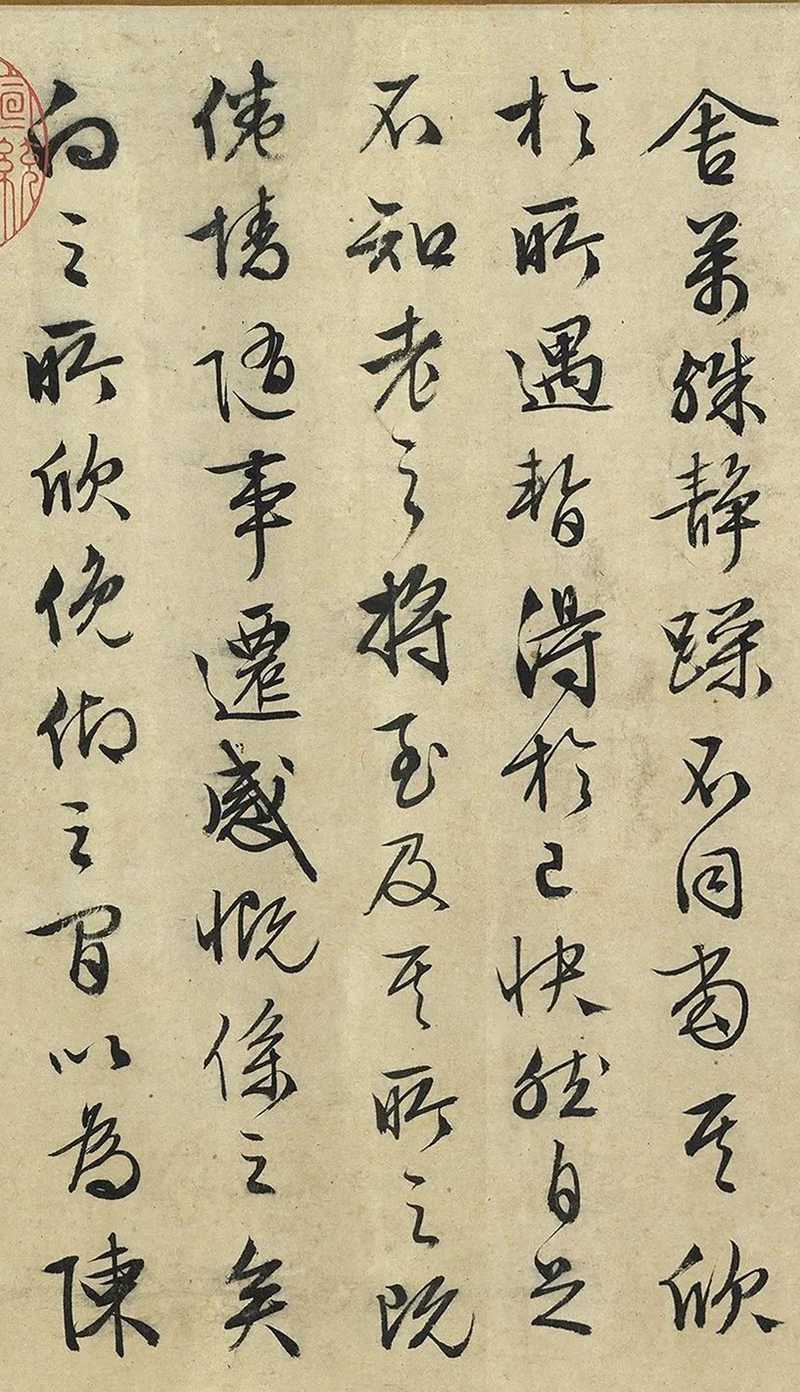 舍萬殊靜躁不同當其欣
於所遇暫得於己快然自足
不知老之將至及其所之既
倦情隨事遷感慨係之矣
向之所欣俛仰之間以為陳